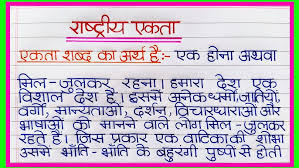 राष्ट्रीय एकता
एकता शब्द का अर्थ है:- एक होना अथवा
मिल-जुलकर रहना। हमारा देश एक
विशाल देश है। इसमें अनेक धर्मो, जातियो,
वर्गो, मान्यताओ, दर्शन, विचारधाराओ और
भाषाओं को मानने वाले लोग मिल-जुलकर
रहते है। जिस प्रकार एक वाटिका की शोभा
उसमे भाँति-भाँति के बहुरंगी पुष्पो से होती